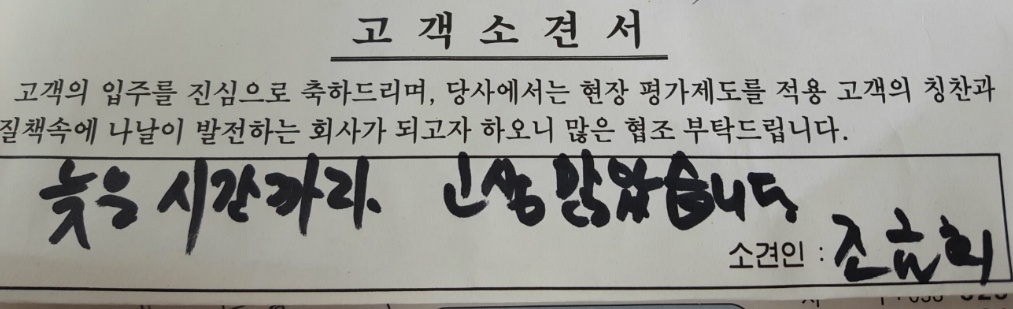 고객소견서
고객의 입주를 진심으로 축하드리며, 당사에서는 현장 평가제도를 적용 고객의 칭찬과
질책속에 나날이 발전하는 회사가 되고자 하오니 많은 협조 부탁드립니다.
늦은 시간까지. 고생 많았습니다
소견인 : 조금희